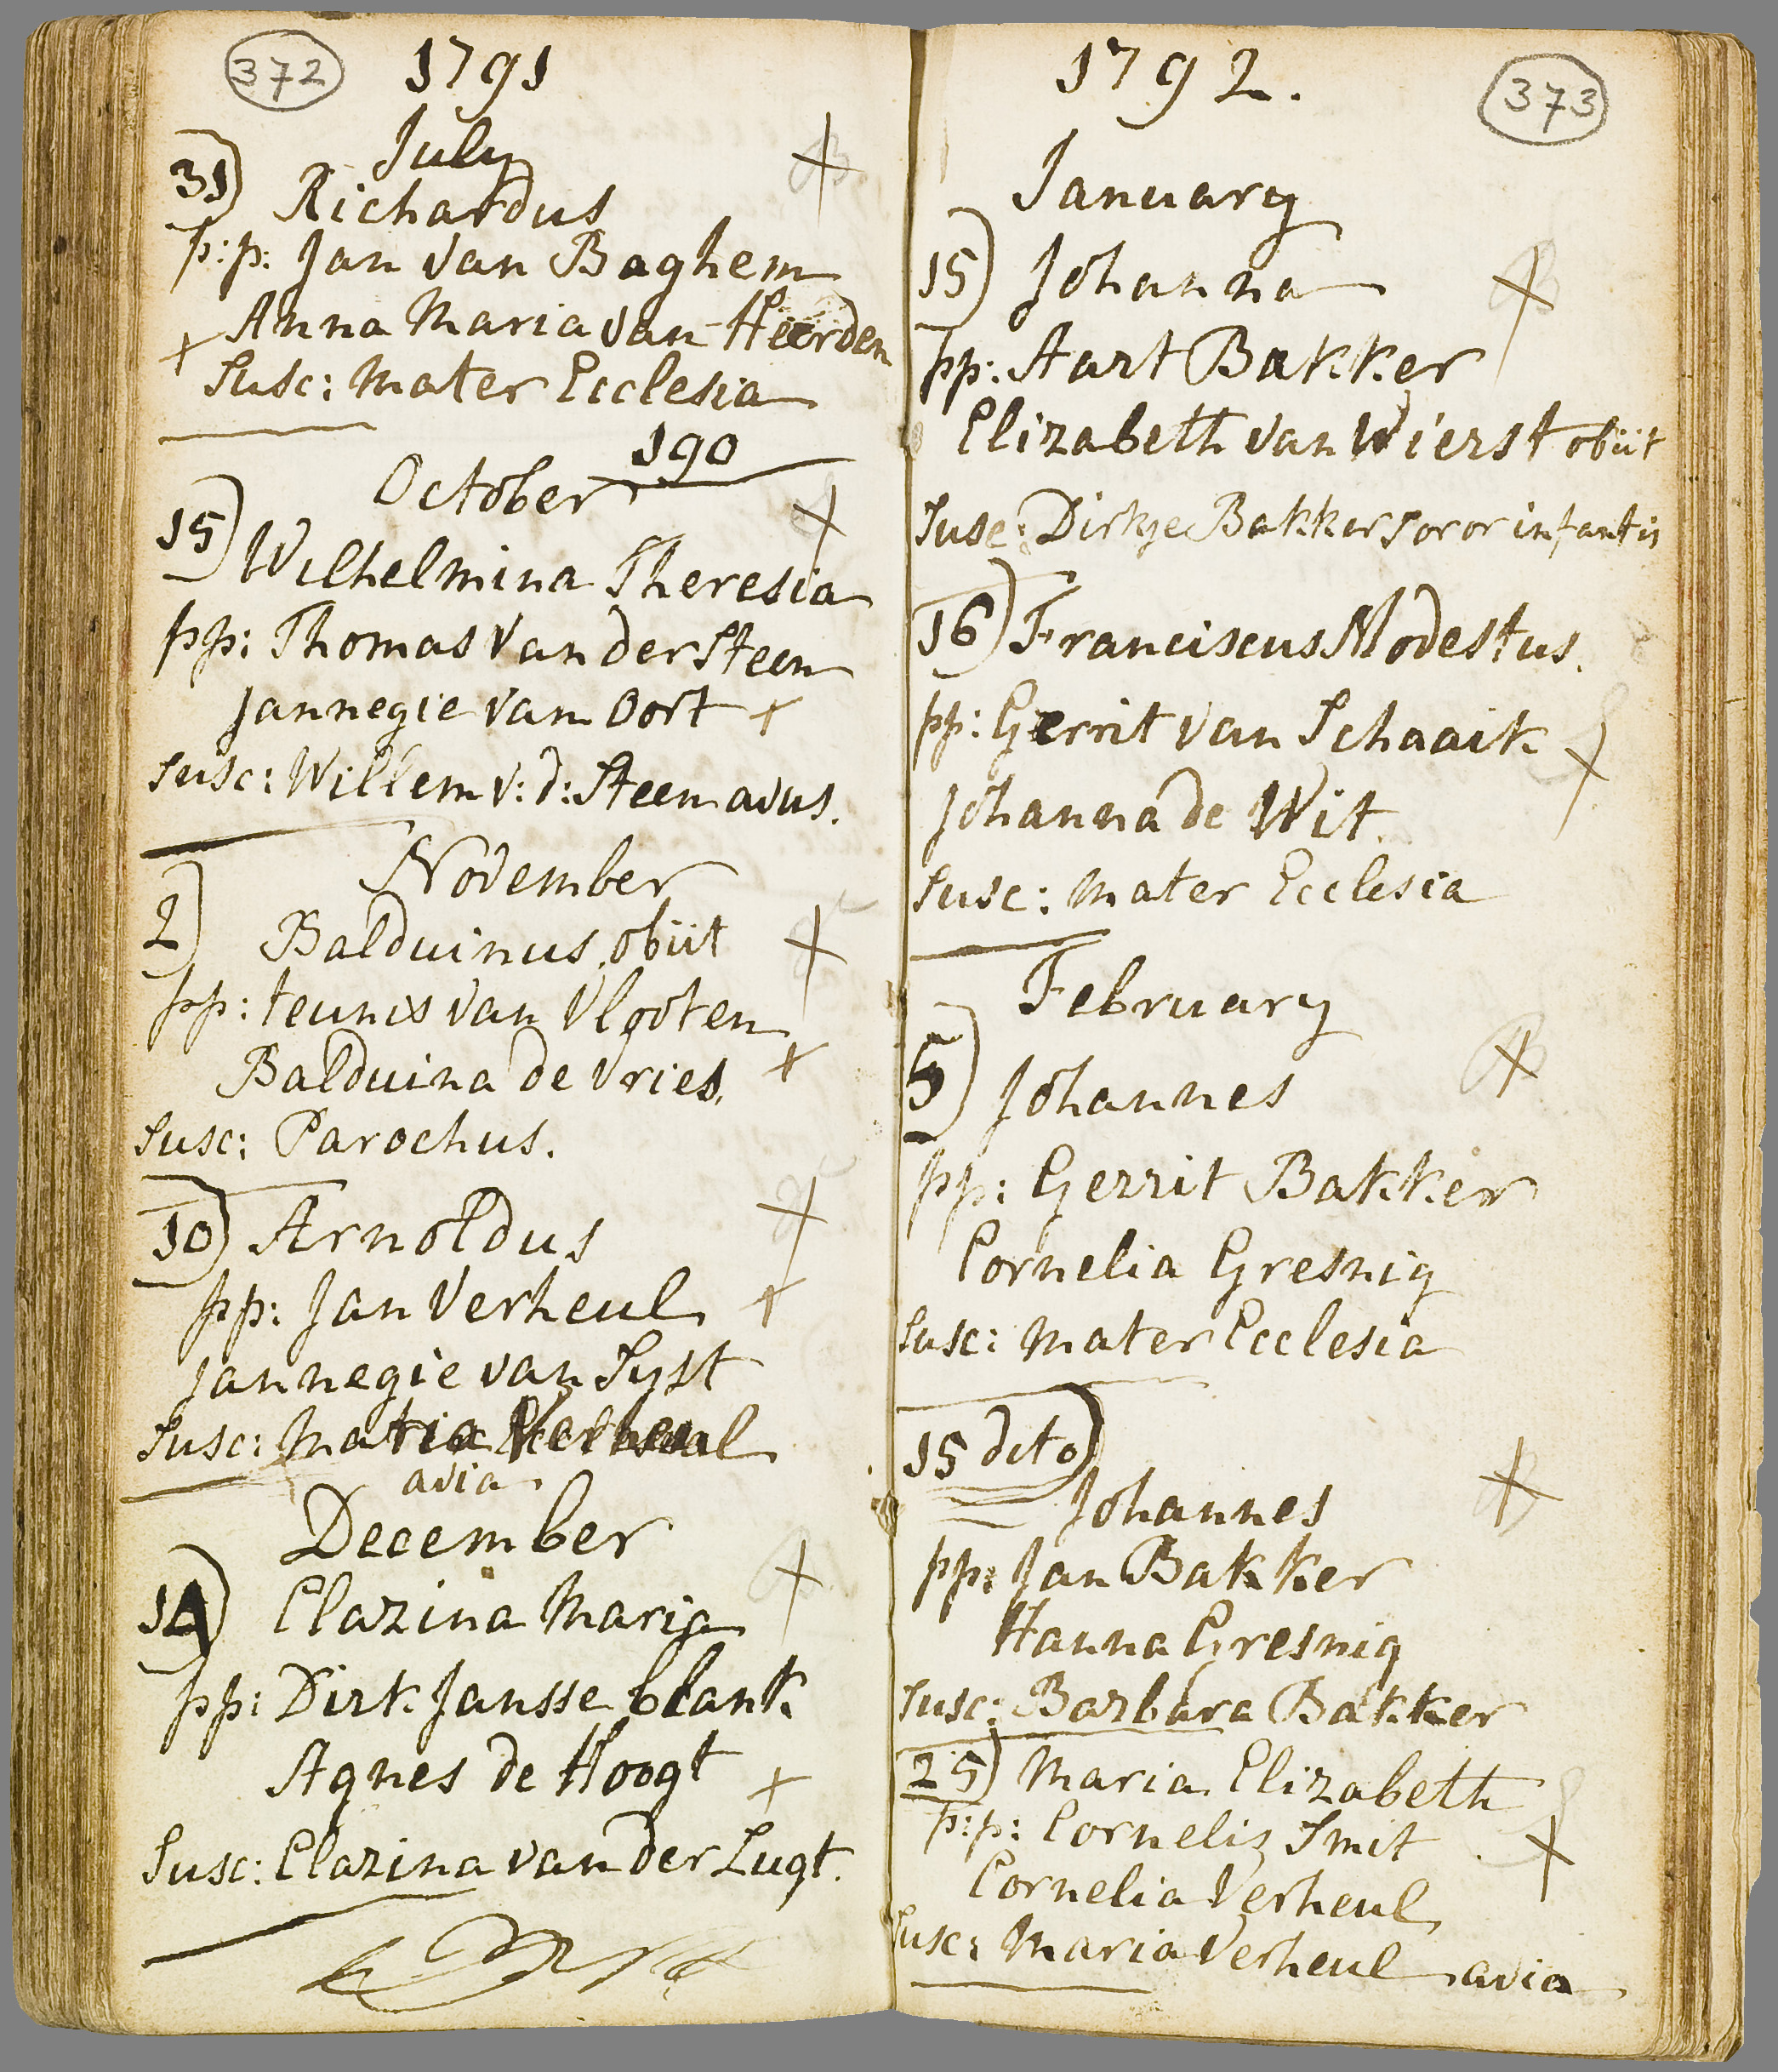 372
1791
July
31) Richardus
p:p: Jan van Baghem
Anna Maria van Heerden
Susc: Mater Ecclesia
190
October
15) Wilhelmina Theresia
pp: Thomas van der Steen
Jannegie van Oort
Susc: Willem v:d: Steen avus.
November
2) Balduinus. obiit
pp: teunis van Vlooten
Balduina de Vries.
Susc: Parochus.
10) Arnoldus
pp: Jan Verheul
Jannegie van Syst
Susc: Maria Verheul
avia
December
14) Clazina Maria
pp: Dirk Jansse blank
Agnes de Hoogt
Susc: Clazina van der Lugt.
373
1792.
January
15) Johanna
pp: Aart Bakker
Elizabeth van Wierst obiit
Susc: Dirkje Bakker soror infantis
16) Franciscus Modestus.
pp: Gerrit van Schaaik
Johanna de Wit.
Susc: Mater Ecclesia
February
5) Johannes
pp: Gerrit Bakker
Cornelia Gresnig
Susc: Mater Ecclesia
15 dito)
Johannes
pp: Jan Bakker
Hanna Gresnig
Susc: Barbara Bakker
25) Maria Elizabeth
p:p: Cornelis Smit
Cornelia Verheul
Susc: Maria Verheul avia